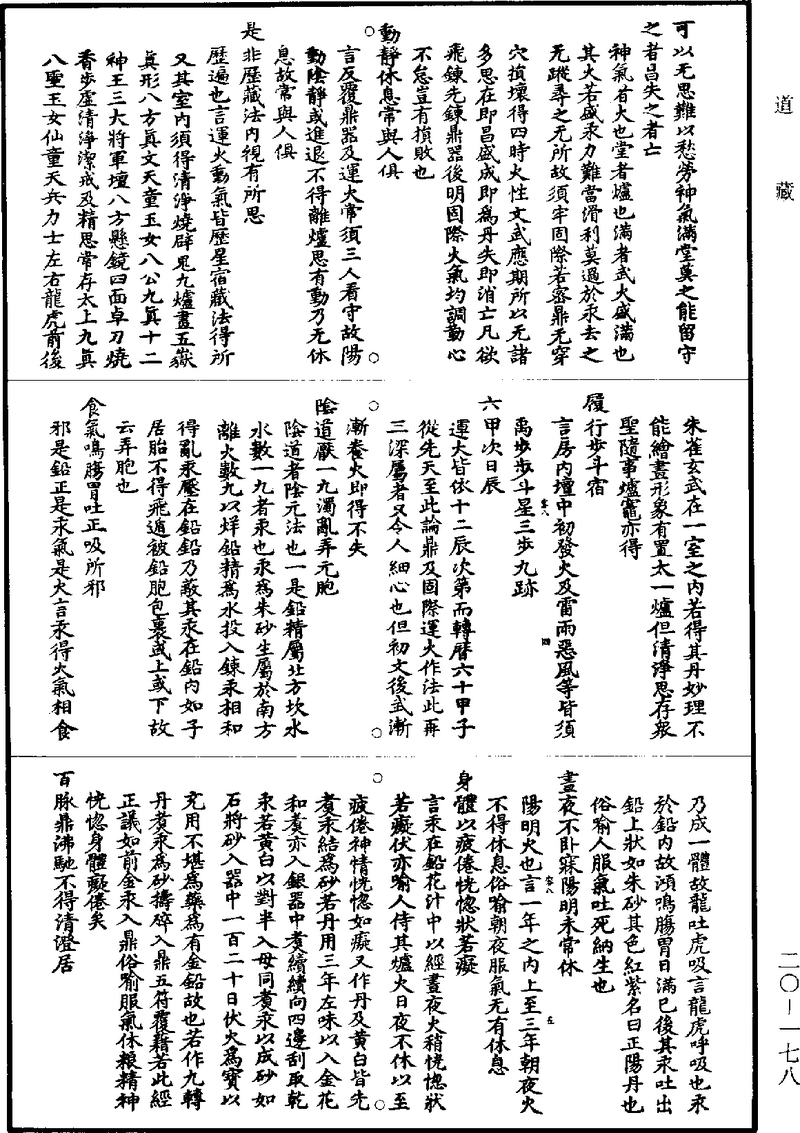 道藏
可以无思難以愁勞神氣滿堂莫之能留守
之者昌失之者亡
神氣者火也堂者爐也滿者武火盛滿也
其火若盛汞力難當滑利莫過於汞去之
无蹤尋之无所故須牢固際若容鼎无穿
穴損壞得四時火性文武應期所以无諸
多思在即昌盛成即為丹失即消亡凡欲
飛鍊先鍊鼎器後明固際火氣均調勤心
不怠豈有損敗也
動靜休息常與人俱
言反覆鼎器及運火常須三人看守故陽
動陰靜或進退不得離爐思有動乃无休
息故常與人俱
是非歷藏法內視有所思
歷遍也言運火動氣皆歷星宿藏法得所
又其室內須得清淨燒辟鬼九爐畫五嶽
真形八方真文天童玉女八公九真十二
神王三大將軍壇八方懸鏡四面卓刀燒
香步虛清淨潔戒及精思常存太上九真
八聖玉女仙童天兵力士左右龍虎前後
朱雀玄武在一室之內若得其丹妙理不
能繪畫形象有置太一爐但清淨思存眾
聖隨事爐竈亦得
履行步斗宿
言房內壇中初發火及雷雨惡風等皆須
禹步步斗星三步九跡
六甲次日辰
運火皆依十二辰次第而轉曆六十甲子
從先天至此論鼎及固際運火作法此再
三深屬者又令人細心也但初文後武漸
漸養火即得不失
陰道厭一九濁亂弄元胞
陰道者陰元法也一是鉛精屬北方坎水
水數一九者汞也汞為朱砂生屬於南方
離火數九以烊鉛精為水投入鍊汞相和
得亂汞壓在鉛鉛乃蔽其汞在鉛內如子
居胎不得飛遁被鉛胞包裹或上或下故
云弄胞也
食氣鳴腸胃吐正吸所邪
邪是鉛正是汞氣是火言汞得火氣相食
乃成一體故龍吐虎吸言龍虎呼吸也汞
於鉛內故澒鳴腸胃日滿已後其汞吐出
鉛上狀如朱砂其色紅紫名曰正陽丹也
俗喻人服氣吐死納生也
晝夜不卧寐陽明未常休
陽明火也言一年之內上至三年朝夜火
不得休息俗喻朝夜服氣无有休息
身體以疲倦恍惚狀若癡
言汞在鉛花汁中以經晝夜火稍恍惚狀
若癡伏亦喻人侍其爐火日夜不休以至
疲倦神情恍惚如癡又作丹及黃白皆先
煑汞結為砂若丹用三年左味以入金花
和煑亦入銀器中煑續續向四邊刮取乾
汞若黃白以對半入母同煑汞以成砂如
石將砂入器中一百二十日伏火為寶以
充用不堪為藥為有金鉛故也若作九轉
丹煑汞為砂擣碎入鼎五符覆藉若此經
正議如前金汞入鼎俗喻服氣休粮精神
恍惚身體癡倦矣
百脉鼎沸馳不得清澄居
二〇—一七八